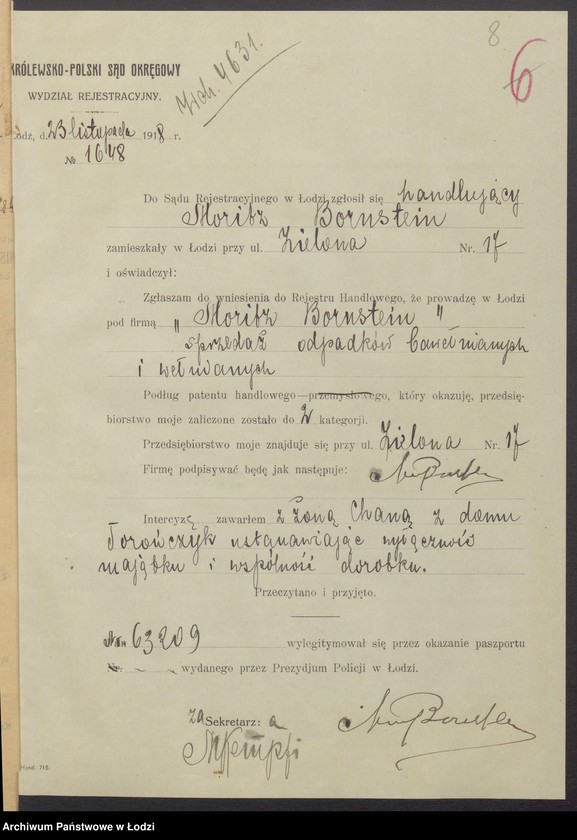 8
6
Zich. 4631.
KRÓLEWSKO-POLSKI SĄD OKRĘGOWY
WYDZIAŁ REJESTRACYJNY.
Łódź, d. 23 listopada 1918 r.
№ 1648
Do Sądu Rejestracyjnego w Łodzi zgłosił się handlujący
Moritz Bornstein
zamieszkały w Łodzi przy ul. Zielona Nr. 17
i oświadczył:
Zgłaszam do wniesienia do Rejestru Handlowego, że prowadzę w Łodzi
pod firmą „Moritz Bornstein"
sprzedaż odpadków bawełnianych
i wełnianych
Podług patentu handlowego—przemysłowego, który okazuję, przedsię-
biorstwo moje zaliczone zostało do 2 kategorji.
Przedsiębiorstwo moje znajduje się przy ul. Zielona Nr. 17
Firmę podpisywać będę jak następuje:
Intercyzę zawarłem z żoną Chaną z domu
Torończyk ustanawiając wyłączność
majątku i wspólność dorobku.
Przeczytano i przyjęto.
63209 wylegitymował się przez okazanie paszportu
Nr. wydanego przez Prezydjum Policji w Łodzi.
za Sekretarz:
MKempfi
Hand. 715.
Archiwum Państwowe w Łodzi